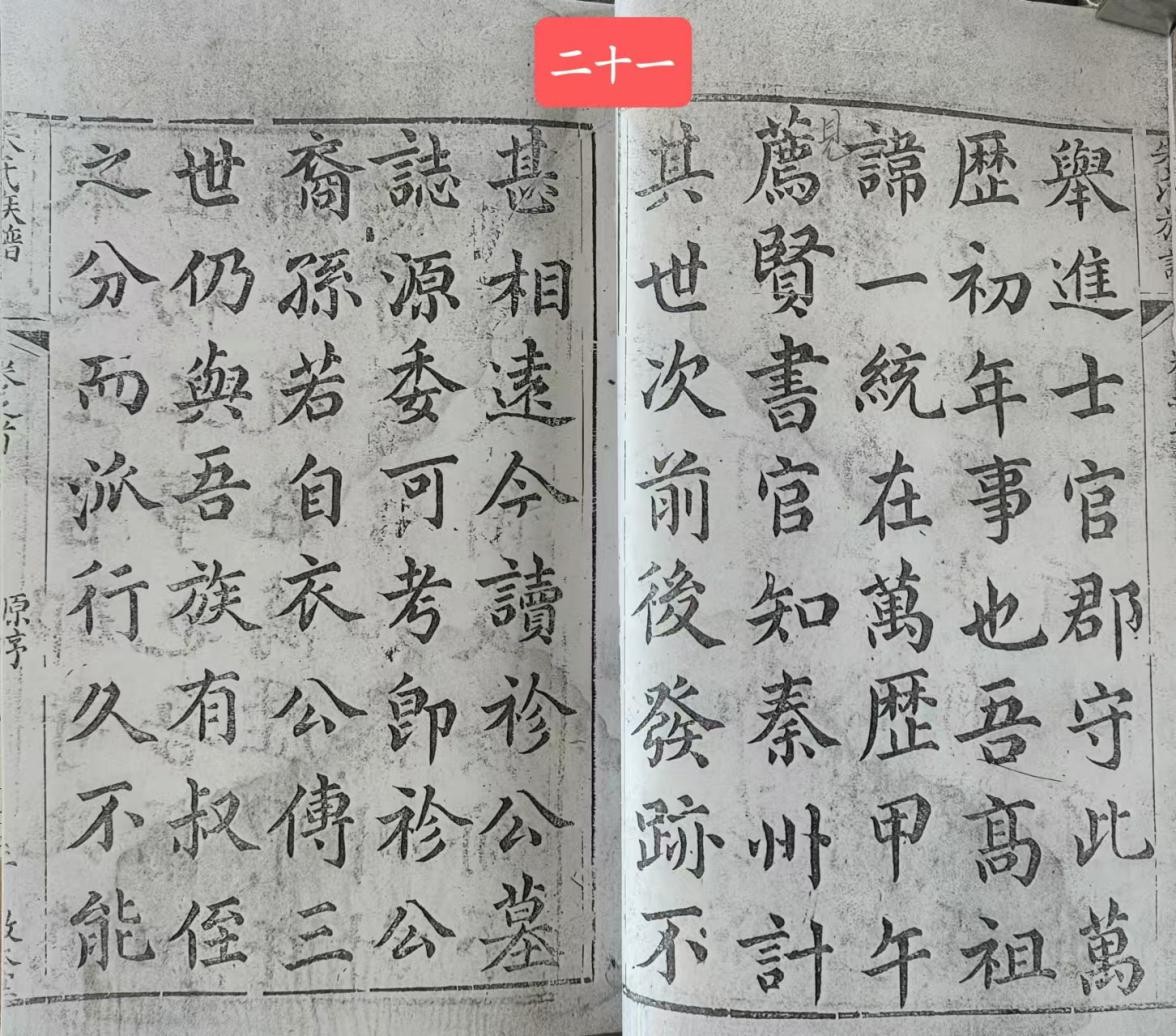 二十一
舉進士官郡守此萬
歷初年事也吾髙祖
諱一統在萬歷甲午
見
薦賢書官知秦州計
其世次前後發跡不
甚相遠今讀袗公墓
誌源委可考即袗公
裔孫若自衣公傳三
世仍與吾族有叔侄
之分而派行久不能
氏族譜
原序